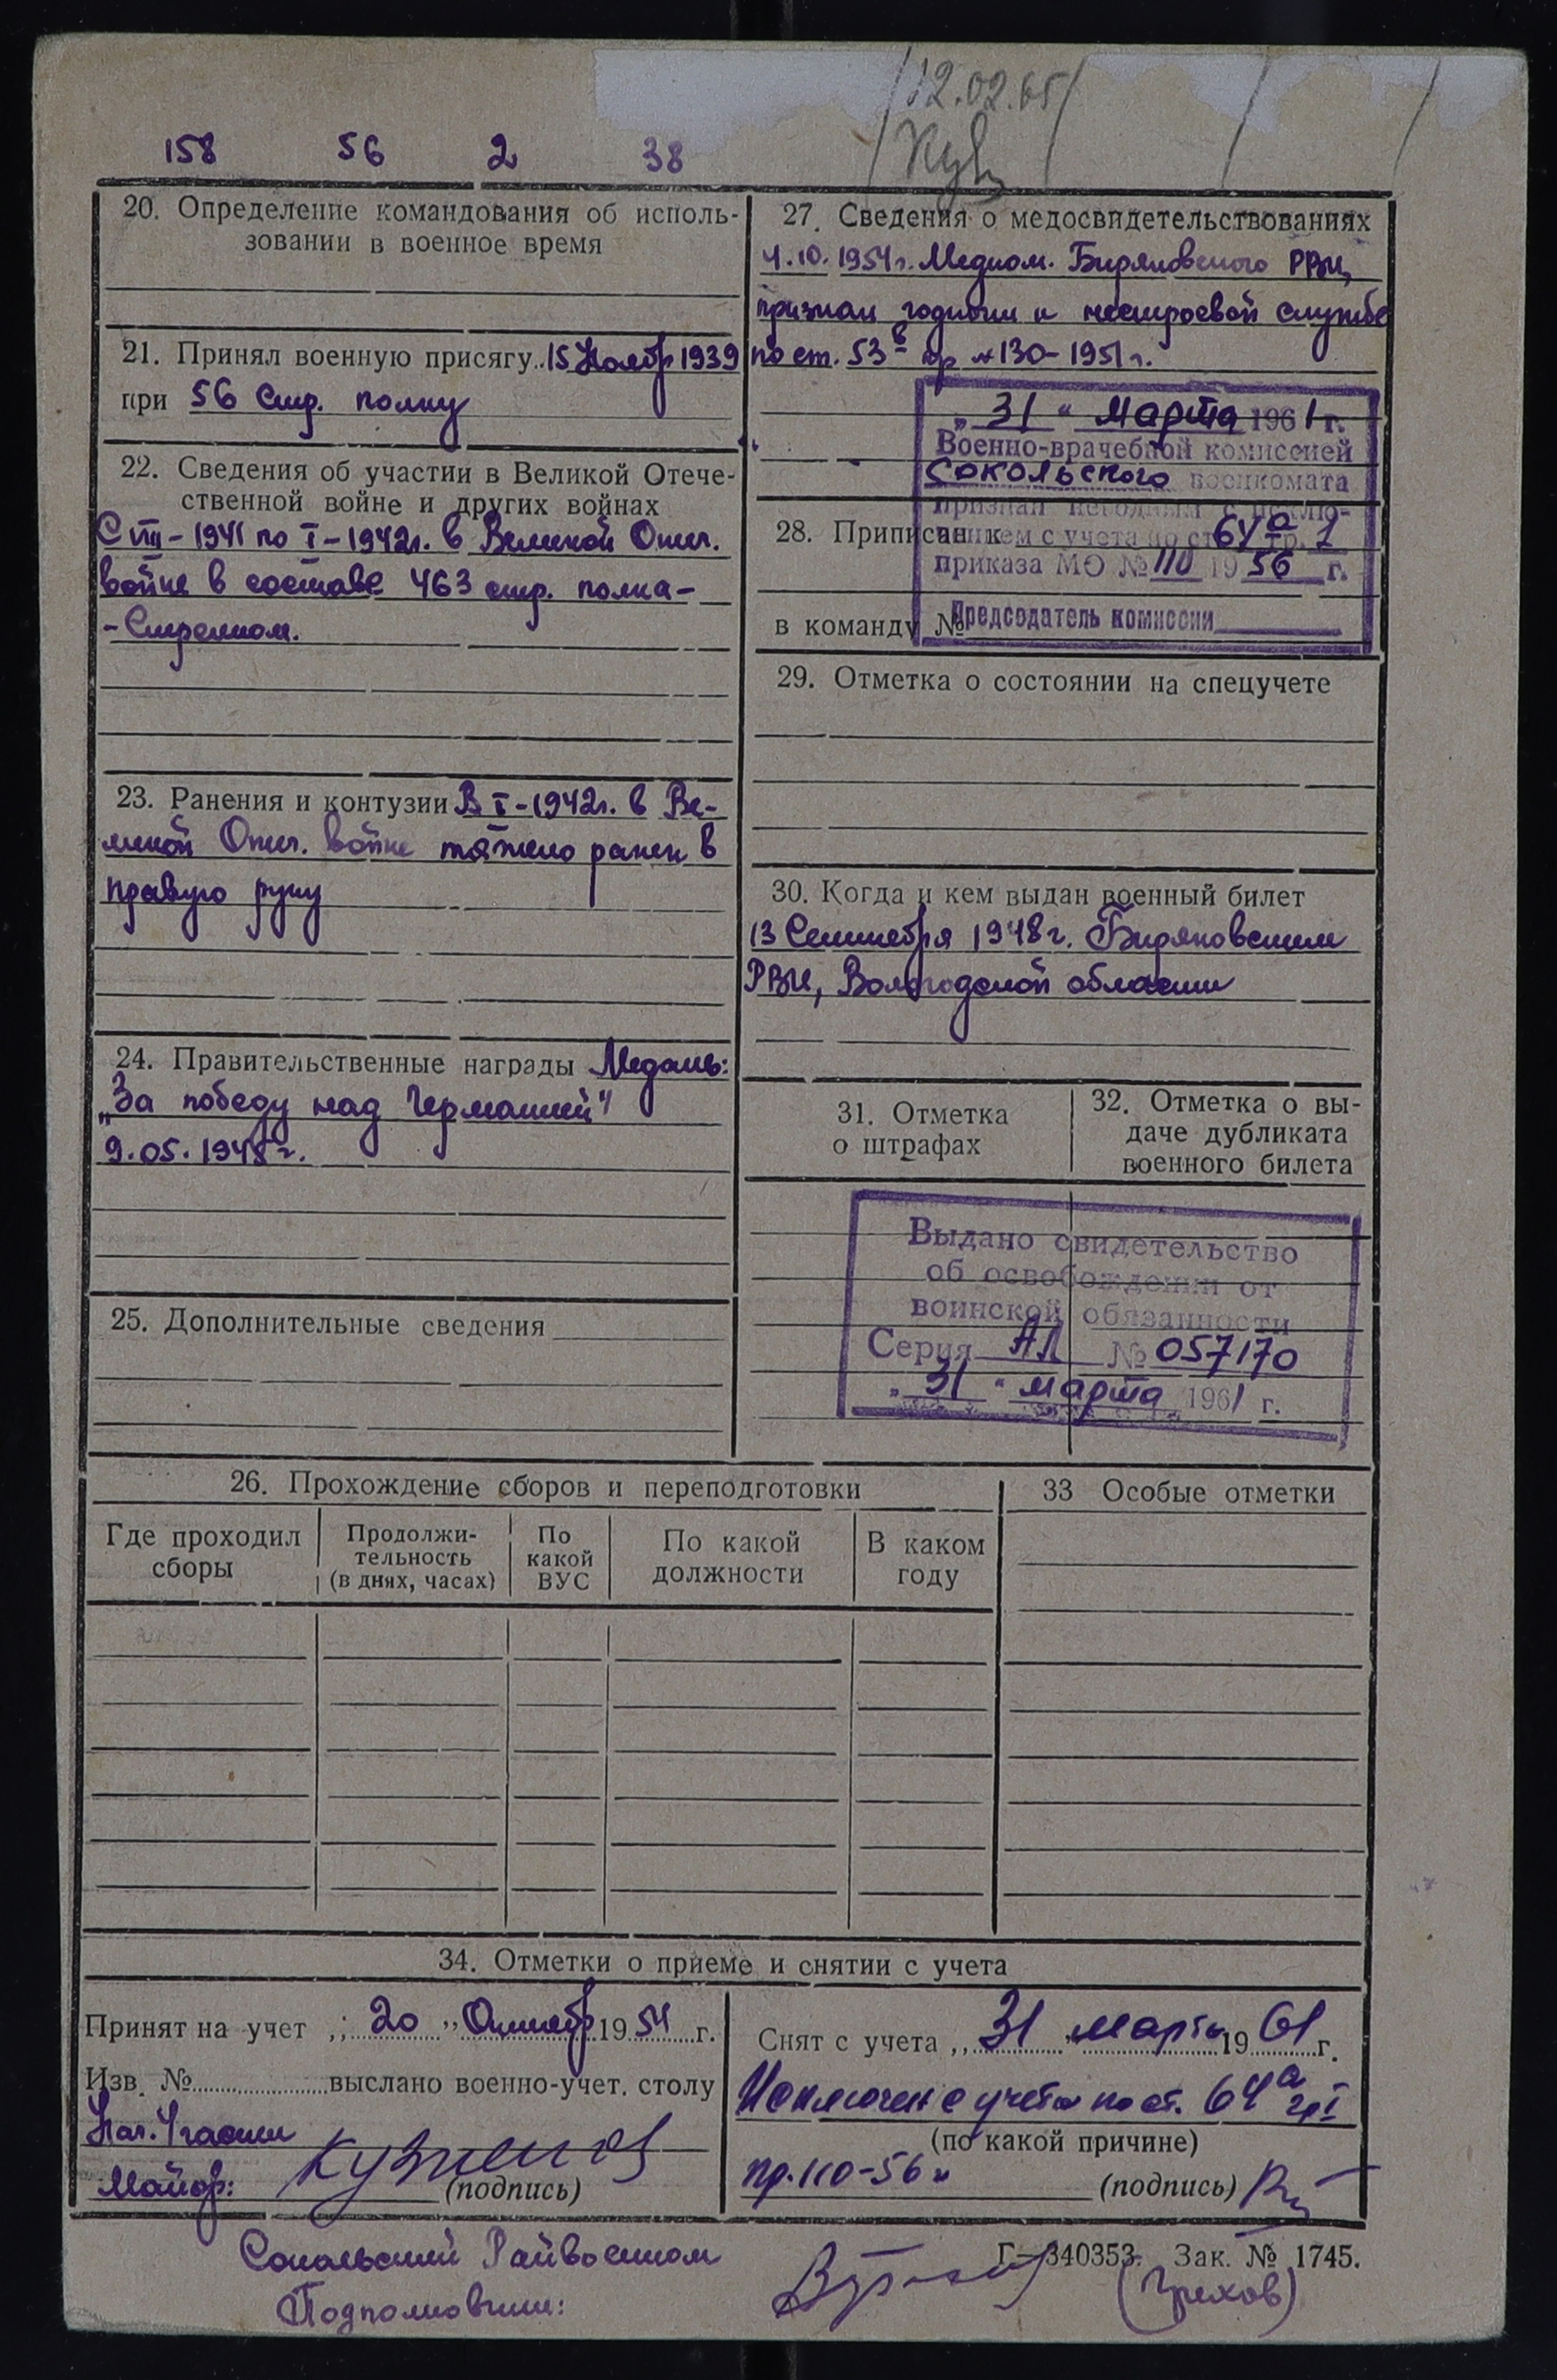 12.02.65
158 56 2 38
20. Определение командования об исполь-
зовании в военное время
21. Принял военную присягу 15 Ноябр 1939
при 56 Стр. полку
22. Сведения об участии в Великой Отече-
ственной войне и других войнах
С VIII-1941 по I-1942г. в Великой Отеч.
войне в составе 463 стр. полка-
-Стрелком.
23. Ранения и контузии В I-1942г. в Ве-
ликой Отеч. войне тяжело ранен в
правую руку
24. Правительственные награды Медаль:
„За победу над Германией"
9.05.1945г.
25. Дополнительные сведения
27. Сведения о медосвидетельствованиях
4.10.1954г. Медком. Биряковского РВК,
признан годным к нестроевой службе
по ст. 53в пр №130-1951г.
„31" Марта 1961г.
Военно-врачебной комиссией
Сокольского военкомата
признан негодным с исклю-
чением с учета по ст 64а гр. 1
приказа МО № 110 1956 г.
Председатель комиссии
28. Приписан к
в команду №
29. Отметка о состоянии на спецучете
30. Когда и кем выдан военный билет
13 Сентября 1948г. Биряковским
РВК, Вологодской области
31. Отметка
о штрафах
32. Отметка о вы-
даче дубликата
военного билета
Выдано свидетельство
об освобождении от
воинской обязанности
Серия АЛ № 057170
„31" марта 1961 г.
26. Прохождение сборов и переподготовки
Где проходил
сборы
Продолжи-
тельность
(в днях, часах)
По
какой
ВУС
По какой
должности
В каком
году
33 Особые отметки
34. Отметки о приеме и снятии с учета
Принят на учет „20" Октябр 1954 г.
Изв. № выслано военно-учет. столу
Нач. 4 части
Майор: Кузнецов
(подпись)
Снят с учета „31" марта 1961 г.
Исключен с учета по ст. 64а гр I
(по какой причине)
пр. 110-56г
(подпись)
Сокольский Райвоенком
Подполковник:
(Грехов)
Г-340353. Зак. № 1745.